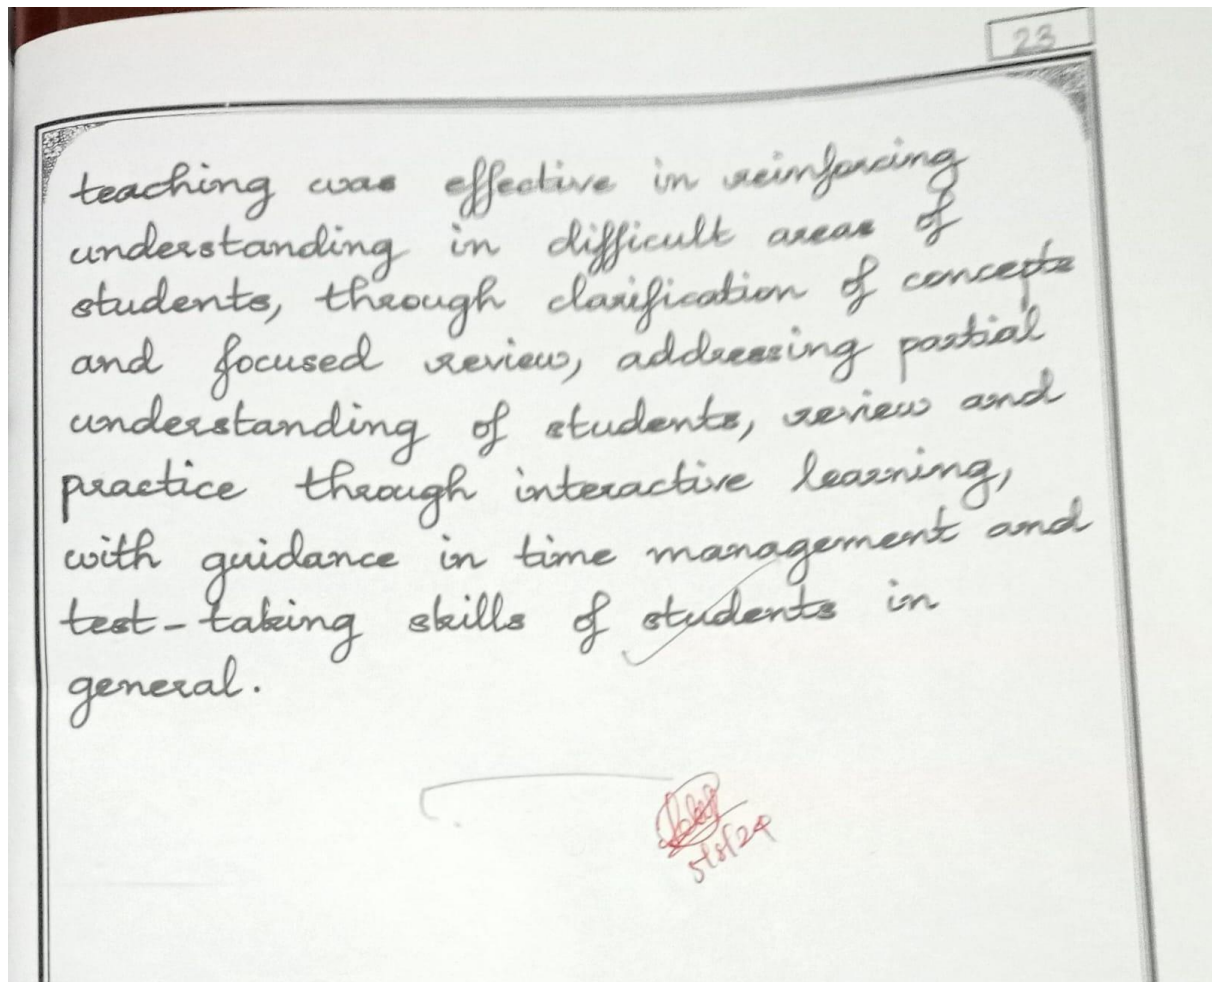 23
teaching was effective in reinforcing
understanding in difficult areas of
students, through clarification of concepts
and focused review, addressing partial
understanding of students, review and
practice through interactive learning,
with guidance in time management and
test-taking skills of students in
general.
5/8/24